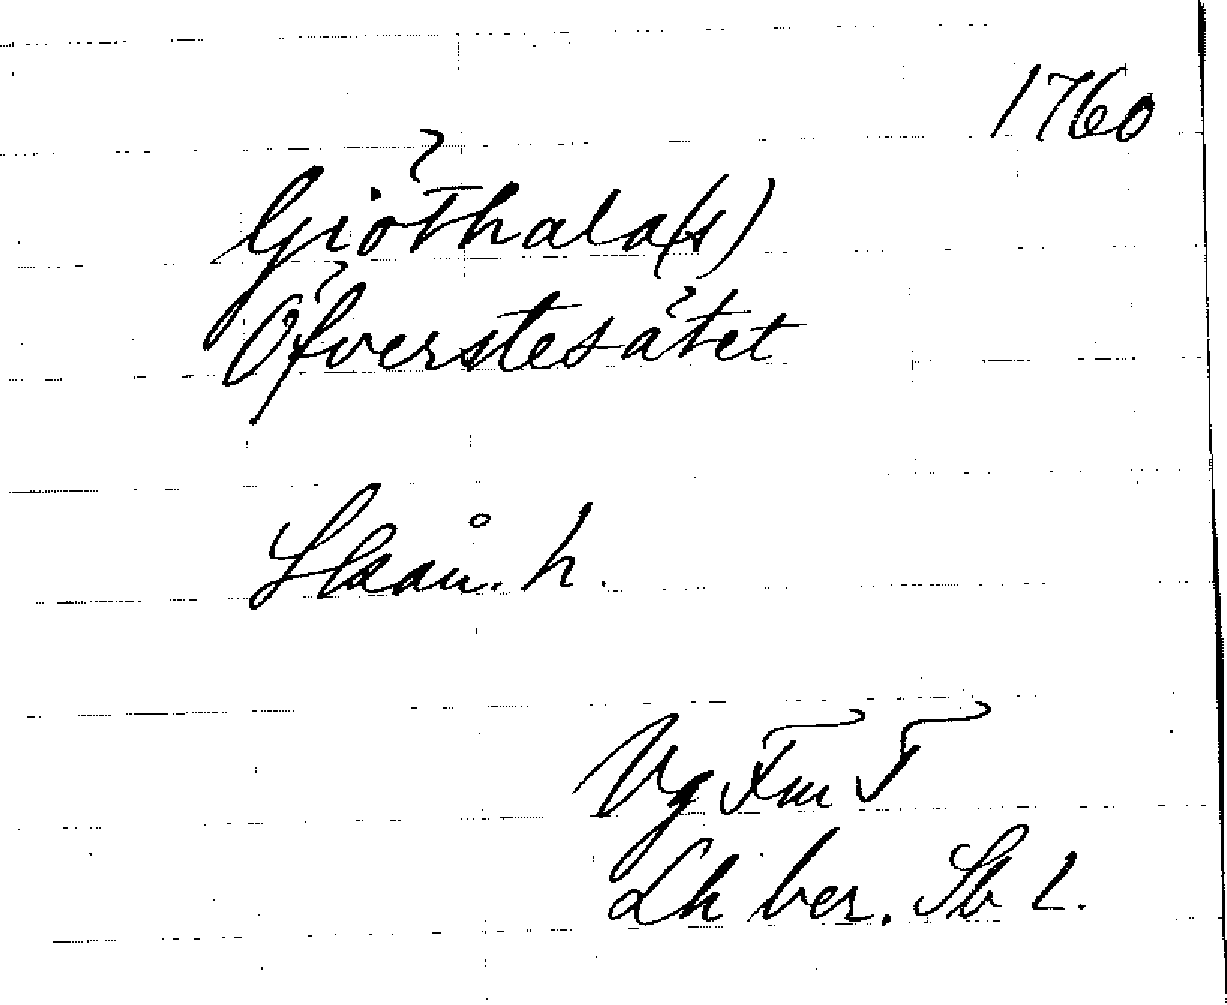 1760
Giöthala(s)
Öfverstesätet
Skån. h.
Vg Fm T
Lh ber. Sb 1.